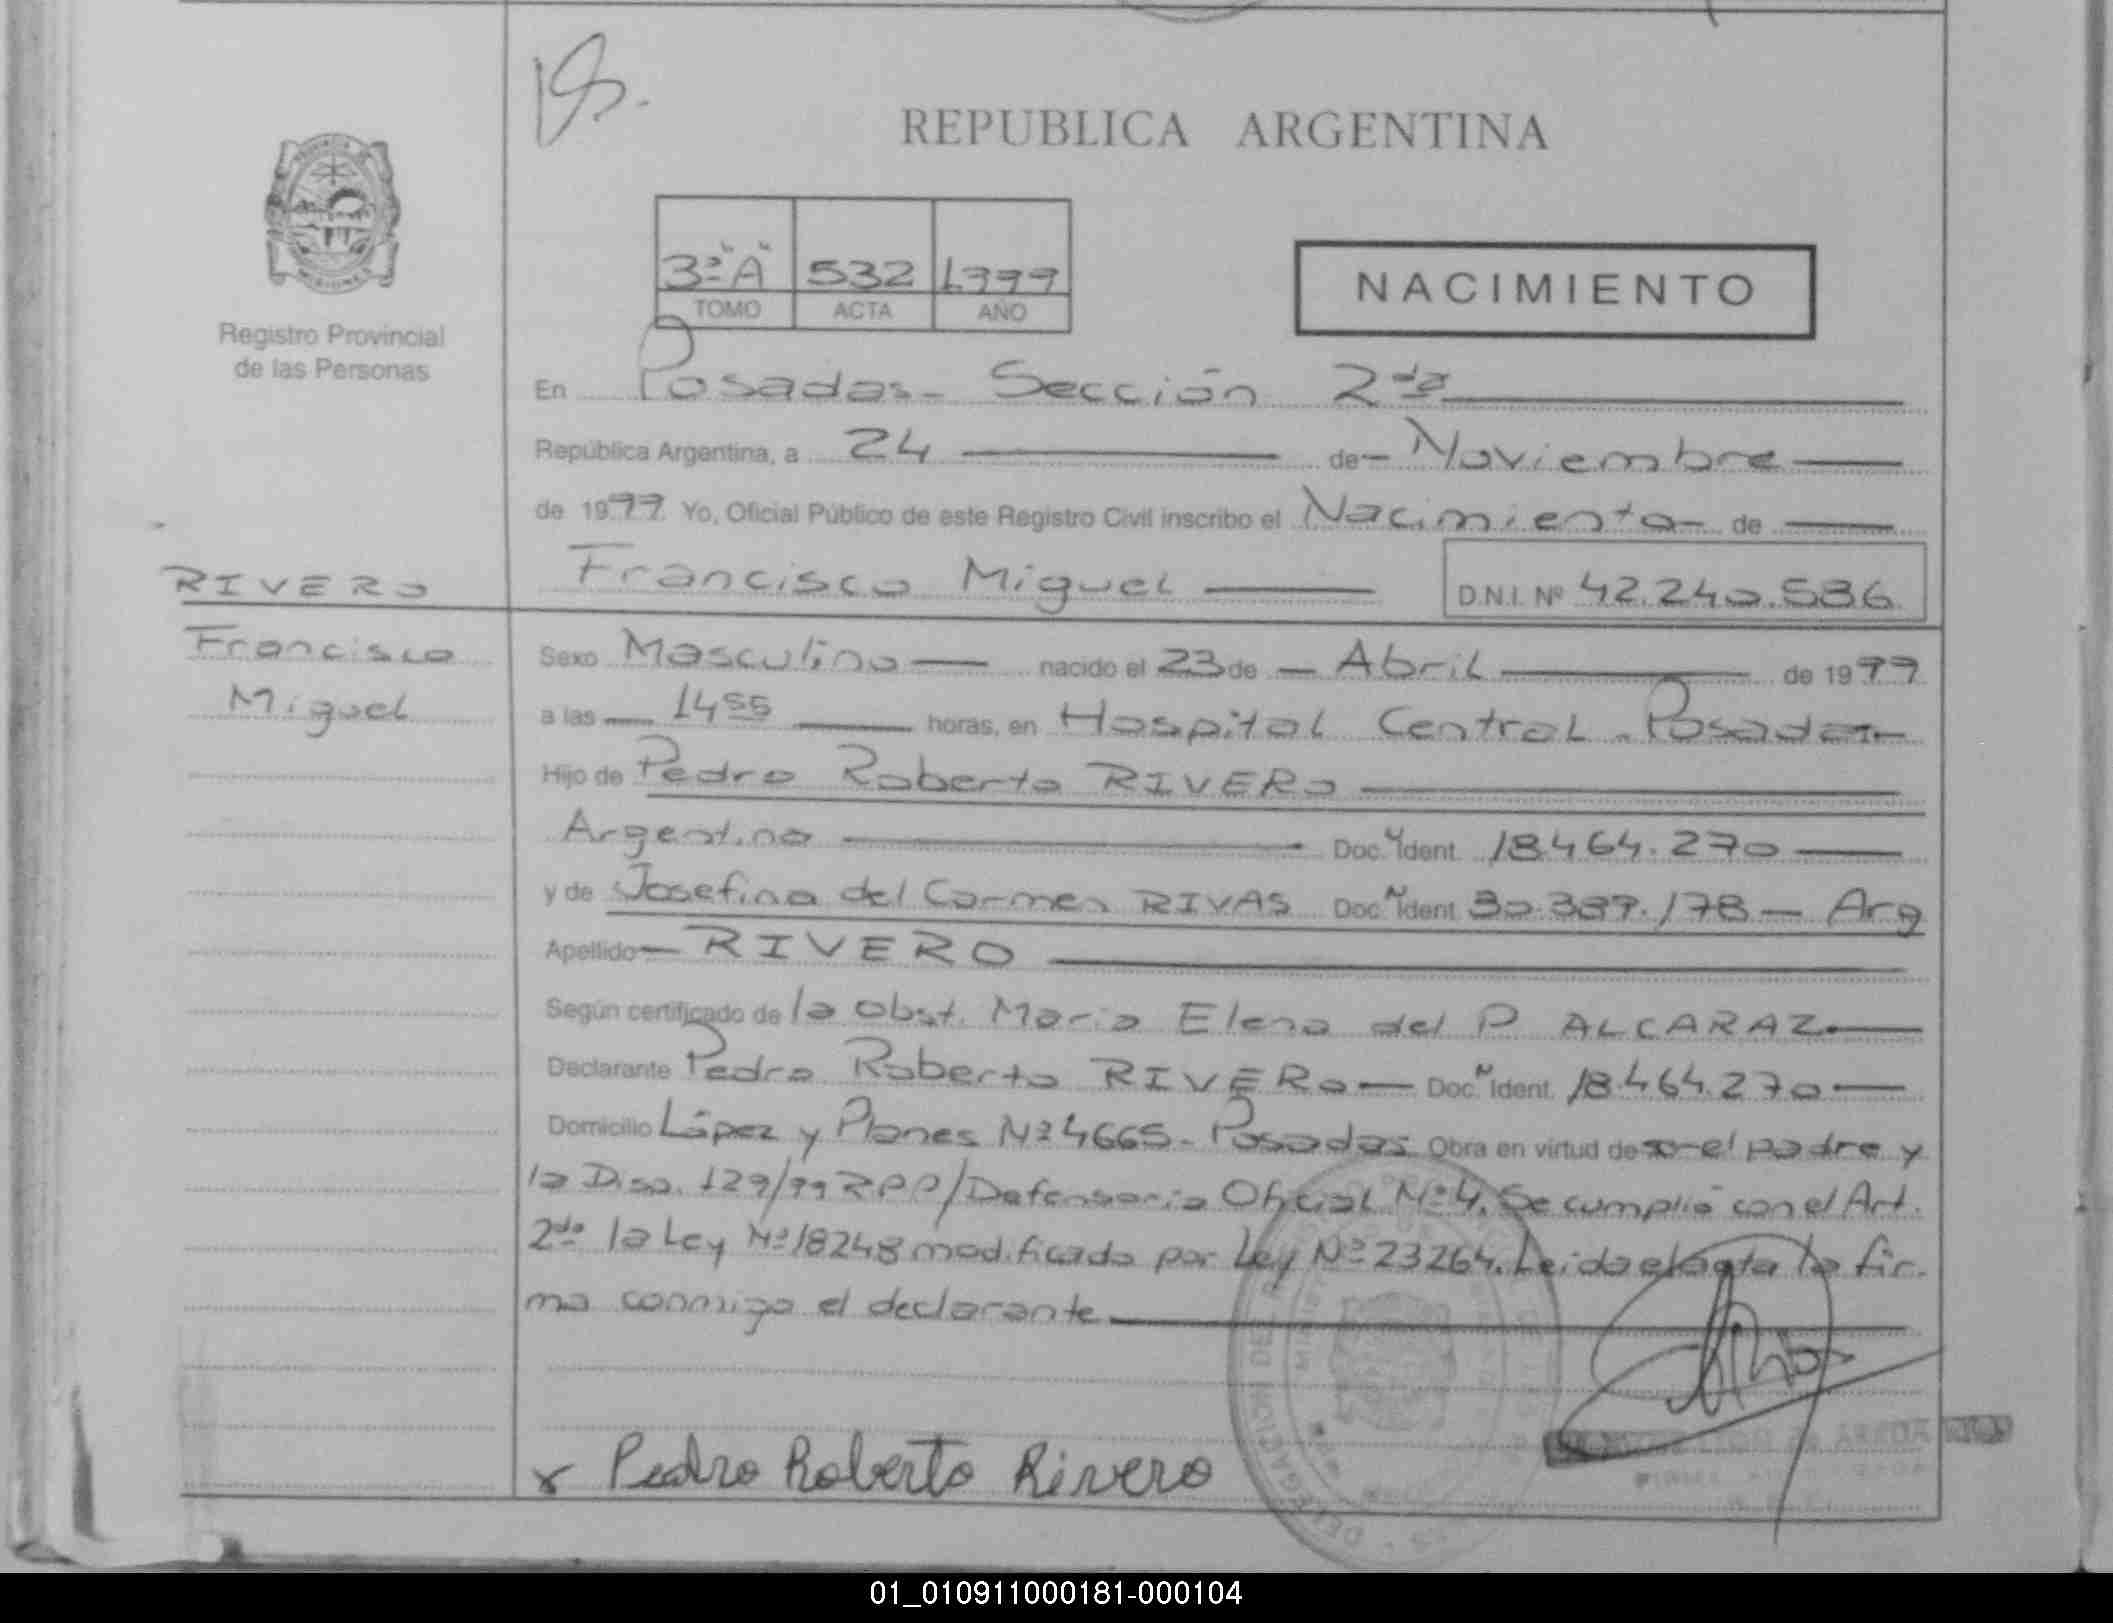 REPUBLICA ARGENTINA
3º "A" 532 1999
TOMO ACTA AÑO
NACIMIENTO
Registro Provincial
de las Personas
En Posadas - Sección 2da
República Argentina, a 24 de Noviembre
de 1999 Yo, Oficial Público de este Registro Civil inscribo el Nacimiento de
RIVERO
Francisco Miguel D.N.I. Nº 42.240.586
Francisco
Miguel
Sexo Masculino nacido el 23 de Abril de 1999
a las 14 55 horas, en Hospital Central - Posadas
Hijo de Pedro Roberto RIVERO
Argentino Doc. Ident. 18.464.270
y de Josefina del Carmen RIVAS Doc. Ident. 30.389.178 - Arg
Apellido RIVERO
Según certificado de la Obst. Maria Elena del P ALCARAZ
Declarante Pedro Roberto RIVERO Doc. Ident. 18.464.270
Domicilio López y Planes Nº 4665 - Posadas Obra en virtud de ser el padre y
la Disp. 129/99 RPP/Defensoria Oficial Nº 4. Se cumplió con el Art.
2do la Ley Nº 18248 modificado por Ley Nº 23264. Leida el acta la fir-
ma conmigo el declarante
x Pedro Roberto Rivero
DELEGACION DE
01_010911000181-000104